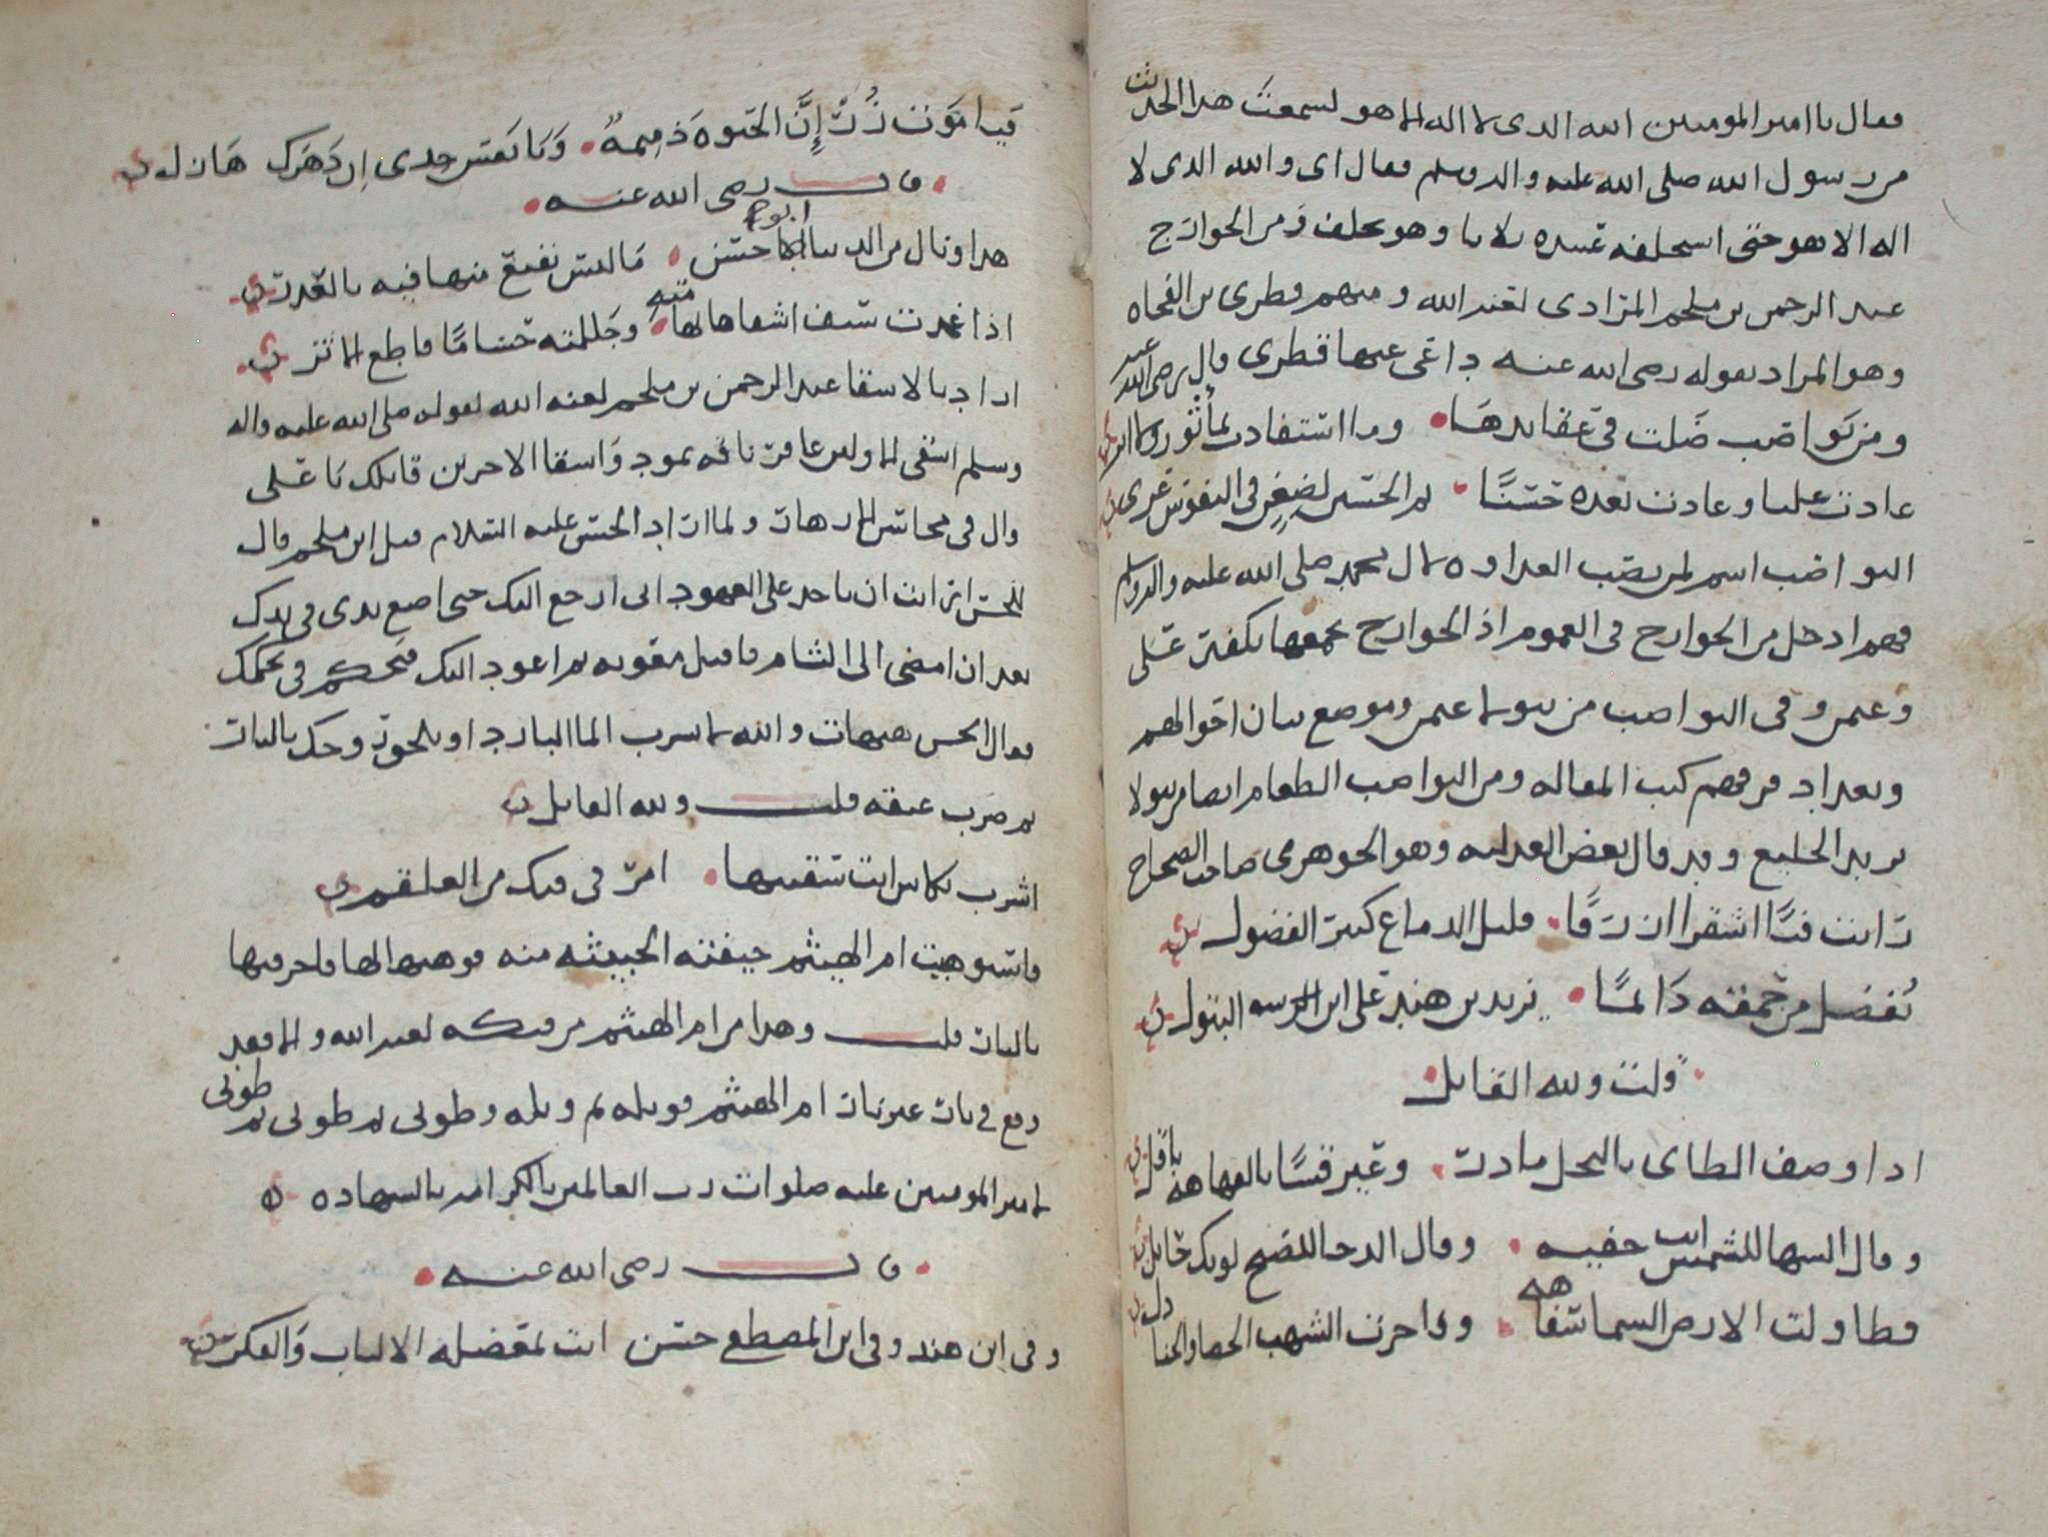 فقال يا امير المومنين الله الذي لا اله الا هو لسمعت هذا الحديث
من رسول الله صلى الله عليه واله وسلم فقال اي والله الذي لا
اله الا هو حتى استحلفه عبيده ثلاثا وهو يحلف ومن الخوارج
عبد الرحمن بن ملجم المرادي لعنه الله ومنهم قطري بن الفجاه
وهو المراد بقوله رضي الله عنه داعي عمها قطري قال رضي الله عنه
ومن نواصب ضلت في عقايدها وما استفادت لمأثور
عادت عليا وعادت بعده حسنا ثم الحسين لضغن في النفوس غري
النواصب اسم لمن نصب العداوه لال محمد صلى الله عليه واله وسلم
فهم ادخل من الخوارج في العموم اذ الخوارج بجمعها تكفير علي
وعثمن وفي النواصب من يتولا عثمن وموضع بيان اقوالهم
وتعداد فرقهم كتب المقاله ومن النواصب الطغام انصار يتولا
يزيد الخليع وقد قال بعض العدليه وهو الجوهري صاحب الصحاح
رايت فتا اشقرا ازرقا قليل الدماغ كثير الفضول
يفضل من حمقه دائما يزيد بن هند على ابن البتول
قلت ولله القايل
اذا وصف الطاي بالبخل مادر وعير قسا بالفهاهه باقل
وقال السها للشمس انت خفيه وقال الدجا للصبح لونك حايل
وطاولت الارض السما سفاهه وفاخرت الشهب الحصا والجنادل
فيا موت زر إن الحيوه ذميمة ويا نفس جدي ان دهرك هازل
قال رضي الله عنه
هذا ونال من الدنيا ابو حسن ما ليس نفيع منها فيه بالقدر
اذا غمدت سيف اشقاها لها منيه وجللته حساما قاطع الاثر
اراد بالاشقا عبد الرحمن بن ملجم لعنه الله لقوله صلى الله عليه واله
وسلم اشقى الاولين عاقر ناقه ثمود واشقا الاخرين قاتلك يا علي
قال في محاسن الازهار ولما اراد الحسن عليه السلام قتل ابن ملجم قال
للحسن ارايت ان تاخذ علي العهود اني ارجع اليك حتى اضع يدي في يدك
بعد ان امضي الى الشام فاقتل معويه ثم اعود اليك فتحكم في بحكمك
فقال الحسن هيهات والله لا شرب الما البارد او تلحق روحك بالنار
ثم ضرب عنقه قلت ولله القايل
اشرب بكاس انت تسقيها امر في فيك من العلقم
واستوهبت ام الهيثم جيفته الخبيثه منه فوهبها لها فاحرقتها
بالنار قلت وهذا من ام الهيثم من فتكه لعبد الله والا فقد
وقع في نار غير نار ام الهيثم فويله ثم ويله وطوبى ثم طوبى ثم طوبى
لامير المومنين عليه صلوات رب العالمين بالكرامه بالشهاده
قال رضي الله عنه
وفي ابن هند وفي ابن المصطفى حسن اتت بمعضله الالباب والفكر